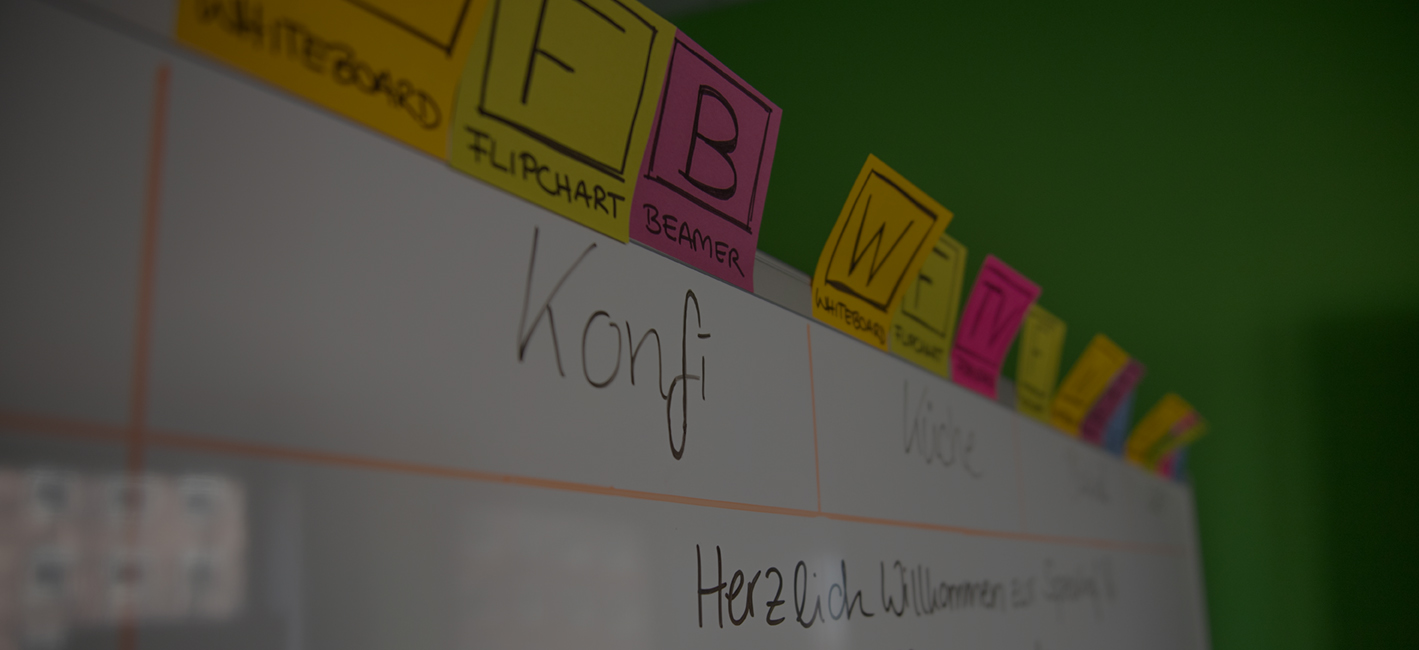 WHITEBOARD
F
FLIPCHART
B
BEAMER
W
WHITEBOARD
F
FLIPCHART
TV
Konfi
Küche
Herzlich Willkommen zur